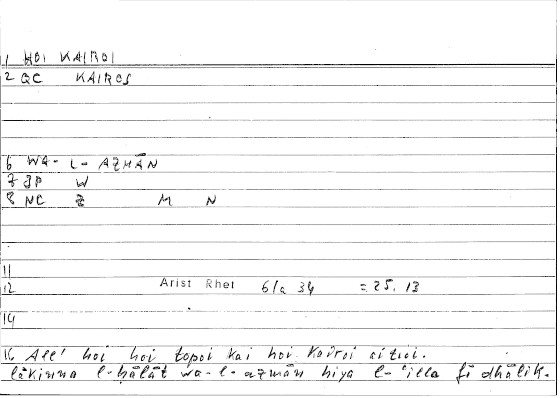 1 HOI KAIROI
2 QC KAIROS
6 WA- L- AZMĀN
7 JP W
8 NC Z M N
11
12 Arist Rhet 61a 34 = 25. 13
14
16 All' hoi hoi topoi kai hoi kairoi aitioi.
lākinna l-hālāt wa-l-azmān hiya l-'illa fī dhālik.